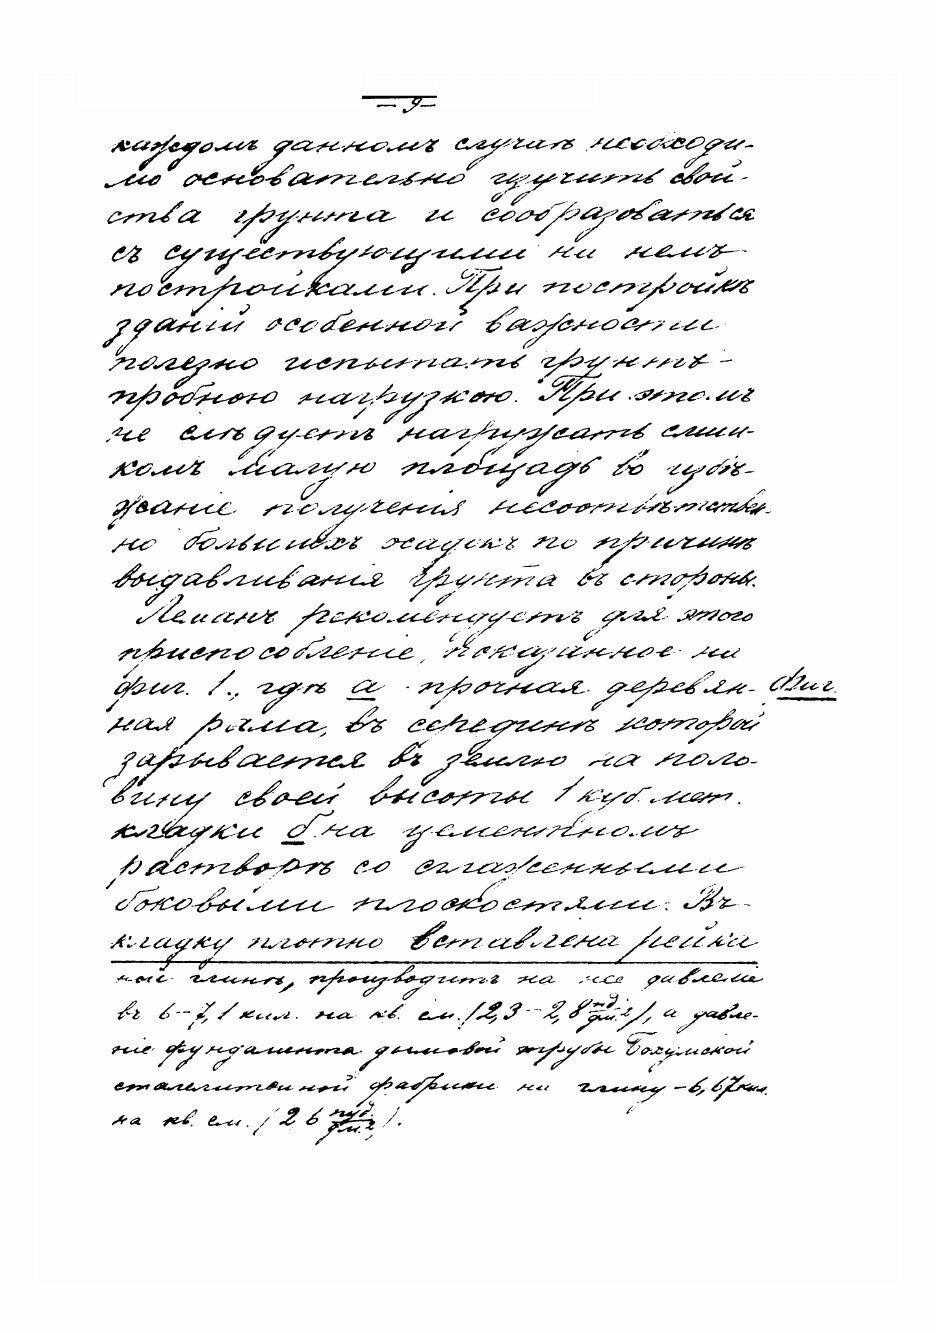 — 9 —
каждомъ данномъ случаѣ необходи-
мо основательно изучить свой-
ства грунта и сообразоваться
съ существующими на немъ
постройками. При постройкѣ
зданій особенной важности
полезно испытать грунтъ -
пробною нагрузкою. При этомъ
не слѣдуетъ нагружать слиш-
комъ малую площадь во избѣ-
жаніе получения несоотвѣтствен-
но большихъ осадокъ по причинѣ
выдавливания грунта въ стороны.
Леманъ рекомендуетъ для этого
приспособленіе, показанное на
фиг. 1., гдѣ а - прочная деревян- Фиг.
ная рама, въ серединѣ которой
зарывается въ землю на поло-
вину своей высоты 1 куб. мет.
кладки б на цементномъ
растворѣ со сглаженными
боковыми плоскостями. Въ
кладку плотно вставлена рейка
ной глинѣ, производитъ на нее давленіе
въ 6-7,1 кил. на кв. см. (2,3-2,8 пд./дм.2), а давле-
ніе фундамента дымовой трубы Бохумской
сталелитейной фабрики на глину - 6,67 кил.
на кв. см. (26 пуд./дм.2).